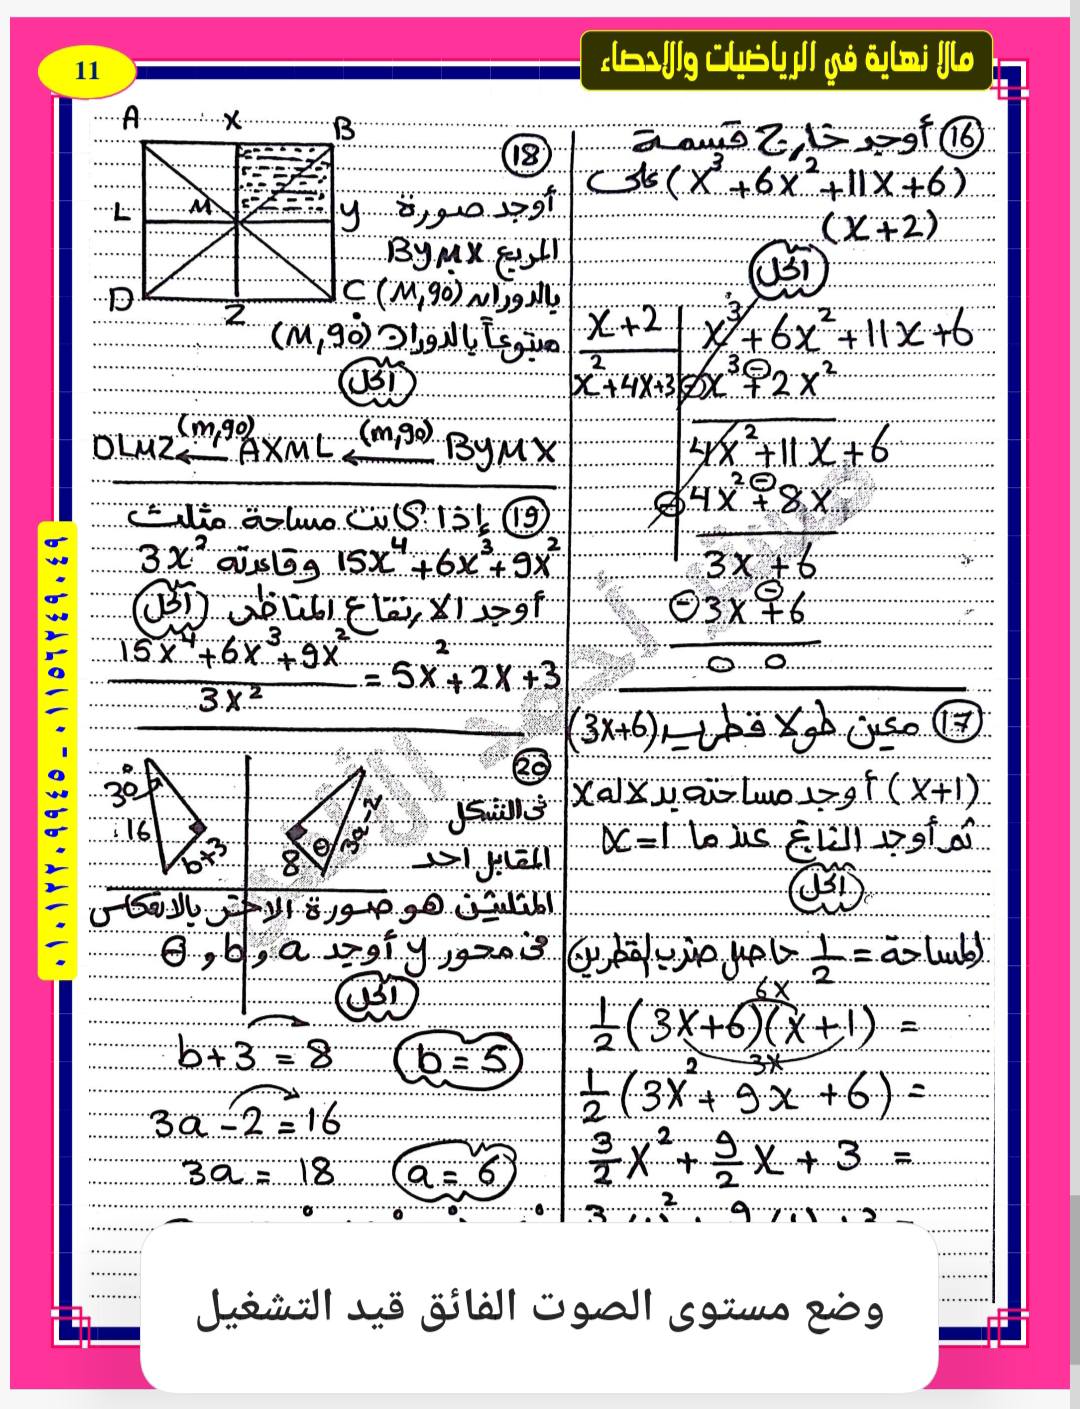 مالا نهاية في الرياضيات والاحصاء
11
16 أوجد خارج قسمة
(x³+6x²+11x+6) على
(x+2)
الحل
x+2 | x³+6x²+11x+6
x²+4x+3 | ⊖x³ ⊖+ 2x²
4x²+11x+6
⊖4x² ⊖+ 8x
3x+6
⊖3x ⊖+ 6
0 0
17 معين طولا قطريه (3x+6)
(x+1) أوجد مساحته بدلاله x
ثم أوجد الناتج عندما x=1
الحل
المساحة = 1/2 حاصل ضرب القطرين
6x
1/2 (3x+6)(x+1) =
3x
1/2 (3x²+9x+6) =
3/2 x² + 9/2 x + 3 =
A X B
L M y
D Z C
18
أوجد صورة
المربع ByMX
بالدوران (M,90)
متبوعاً بالدوران (M,90°)
الحل
DLMZ ←(m,90) AXML ←(m,90) ByMX
19 إذا كانت مساحة مثلث
15x⁴+6x³+9x² وقاعدته 3x²
أوجد الارتفاع المناظر الحل
15x⁴+6x³+9x² / 3x² = 5x²+2x+3
20
فى الشكل
المقابل احد
30°
16
b+3
8
θ
3a-2
المثلثين هو صورة الاخر بالانعكاس
فى محور y أوجد a و b و θ
الحل
b+3 = 8 b=5
3a-2=16
3a = 18 a=6
٠١٠١٢٢٠٩٩٤٥ - ٠١١٥٦٢٤٩٠٤٩
وضع مستوى الصوت الفائق قيد التشغيل